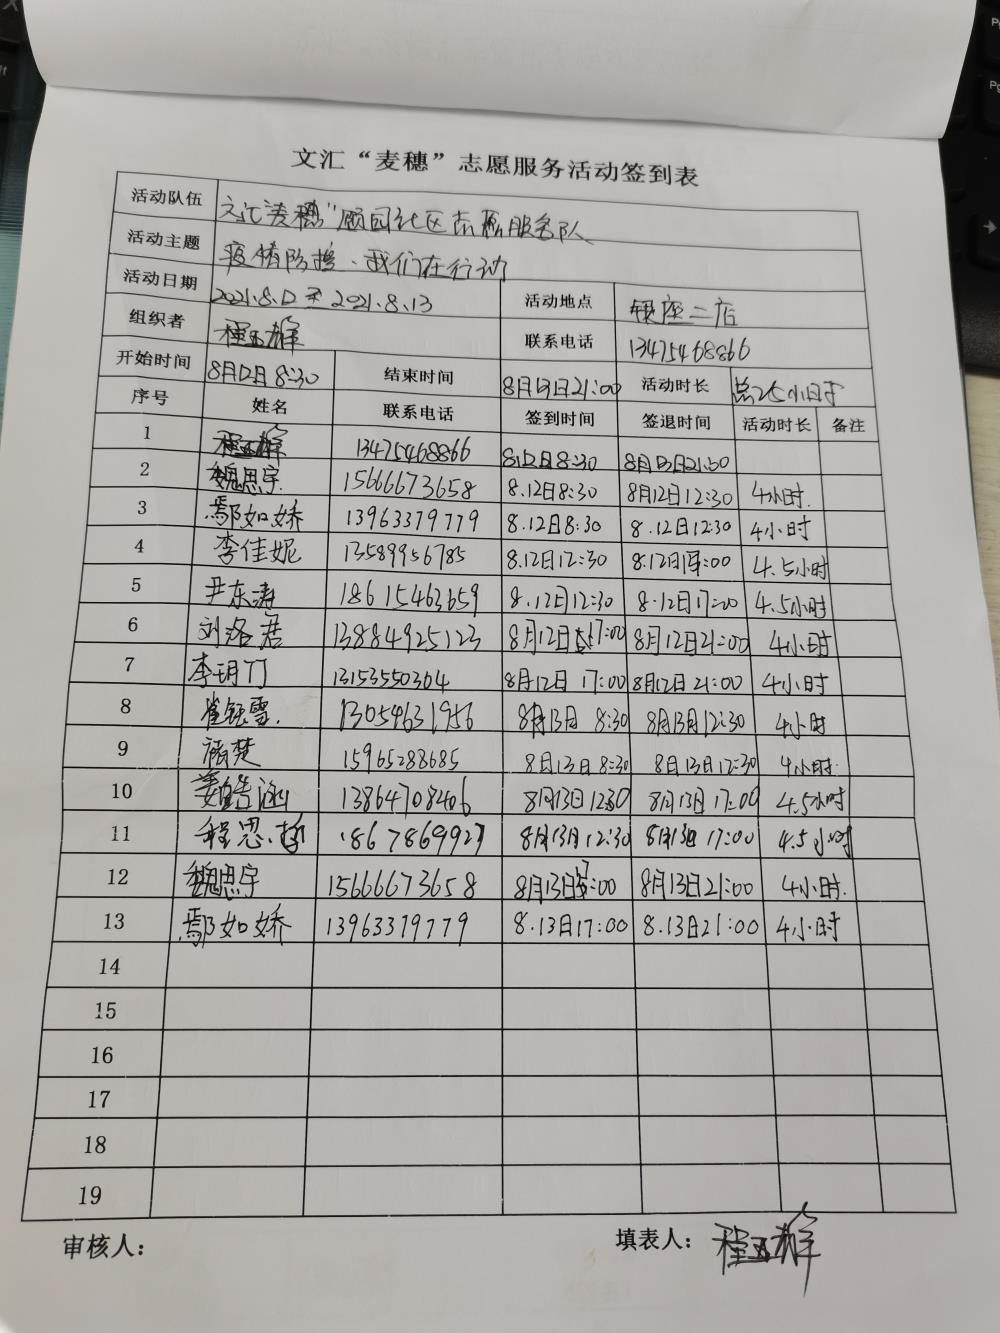 文汇“麦穗”志愿服务活动签到表
活动队伍 文汇麦穗”颐园社区志愿服务队
活动主题 疫情防控、我们在行动
活动日期 2021.8.12至2021.8.13 活动地点 银座二店
组织者 联系电话 13475468866
开始时间 8月12日8:30 结束时间 8月13日21:00 活动时长 总25小时
序号 姓名 联系电话 签到时间 签退时间 活动时长 备注
1 13475468866 8.12日8:30 8月13日21:00
2 魏思宇 15666673658 8.12日8:30 8月12日12:30 4小时.
3 鄢如娇 13963379779 8.12日8:30 8.12日12:30 4小时
4 李佳妮 13589956785 8.12日12:30 8.12日17:00 4.5小时
5 尹东涛 18615463659 8.12日12:30 8.12日17:00 4.5小时
6 刘洛君 13884925123 8月12日17:00 8月12日21:00 4小时
7 李玥冂 13153550304 8月12日 17:00 8月12日 21:00 4小时
8 崔钰雪. 13054631956 8月13日 8:30 8月13日12:30 4小时
9 楚 15965288685 8月13日8:30 8月13日12:30 4小时.
10 姜皓涵 13864708406 8月13日12:30 8月13日 17:00 4.5小时
11 程思哲 1867869927 8月13日12:30 8月13日 17:00 4.5小时
12 魏思宇 15666673658 8月13日17:00 8月13日21:00 4小时.
13 鄢如娇 13963379779 8.13日17:00 8.13日21:00 4小时
14
15
16
17
18
19
审核人： 填表人：